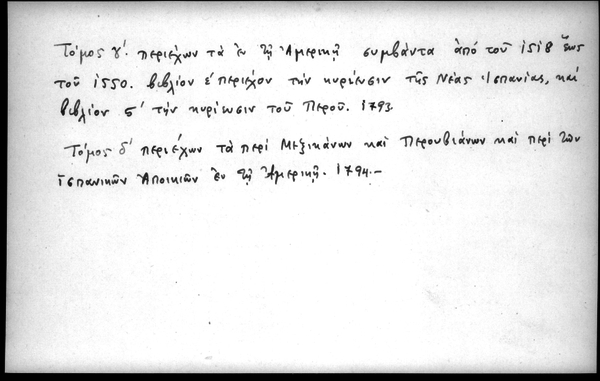 Τόμος γ'. περιέχων τὰ ἐν τῇ Ἀμερικῇ συμβάντα ἀπό τοῦ 1518 ἕως
τοῦ 1550. βιβλίον ε' περιέχον τὴν κυρίευσιν τῆς Νέας Ἱσπανίας, καί
βιβλίον 5' τὴν κυρίωσιν τοῦ Περοῦ. 1793.
Τόμος δ' περιέχων τὰ περί Μεξικάνων καί Περουβιάνων καί περί τῶν
ἱσπανικῶν Ἀποικιῶν ἐν τῇ Ἀμερικῇ. 1794.-